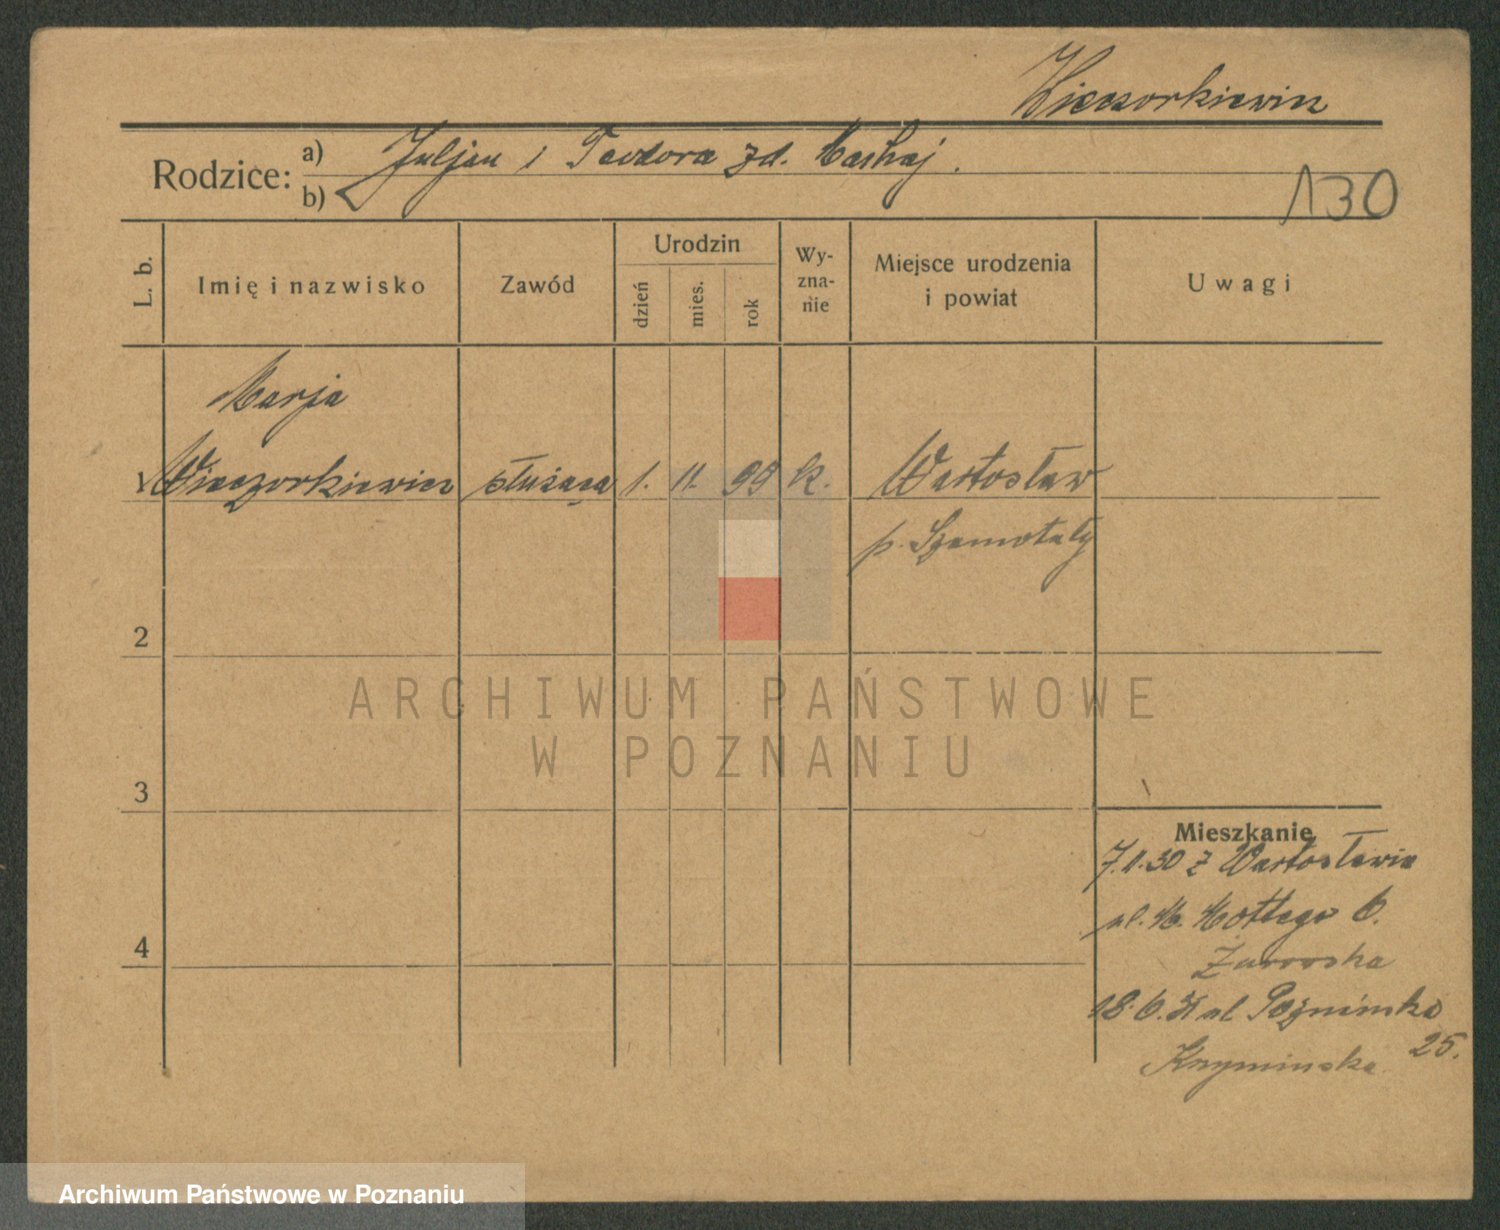 Wieczorkiewicz
Rodzice: a) Juljan i Teodora zd.
b)
130
L. b.
Imię i nazwisko
Zawód
Urodzin
dzień
mies.
rok
Wy-
zna-
nie
Miejsce urodzenia
i powiat
Uwagi
Marja
1 Wieczorkiewicz służąca 1. 11. 99 k. Wartosław
p. Szamotuły
2
3
4
Mieszkanie
7.11.30 z Wartosławia
ul. M. Mottego 6.
Żurowska
18.6.31 ul
25.
ARCHIWUM PAŃSTWOWE
W POZNANIU
Archiwum Państwowe w Poznaniu